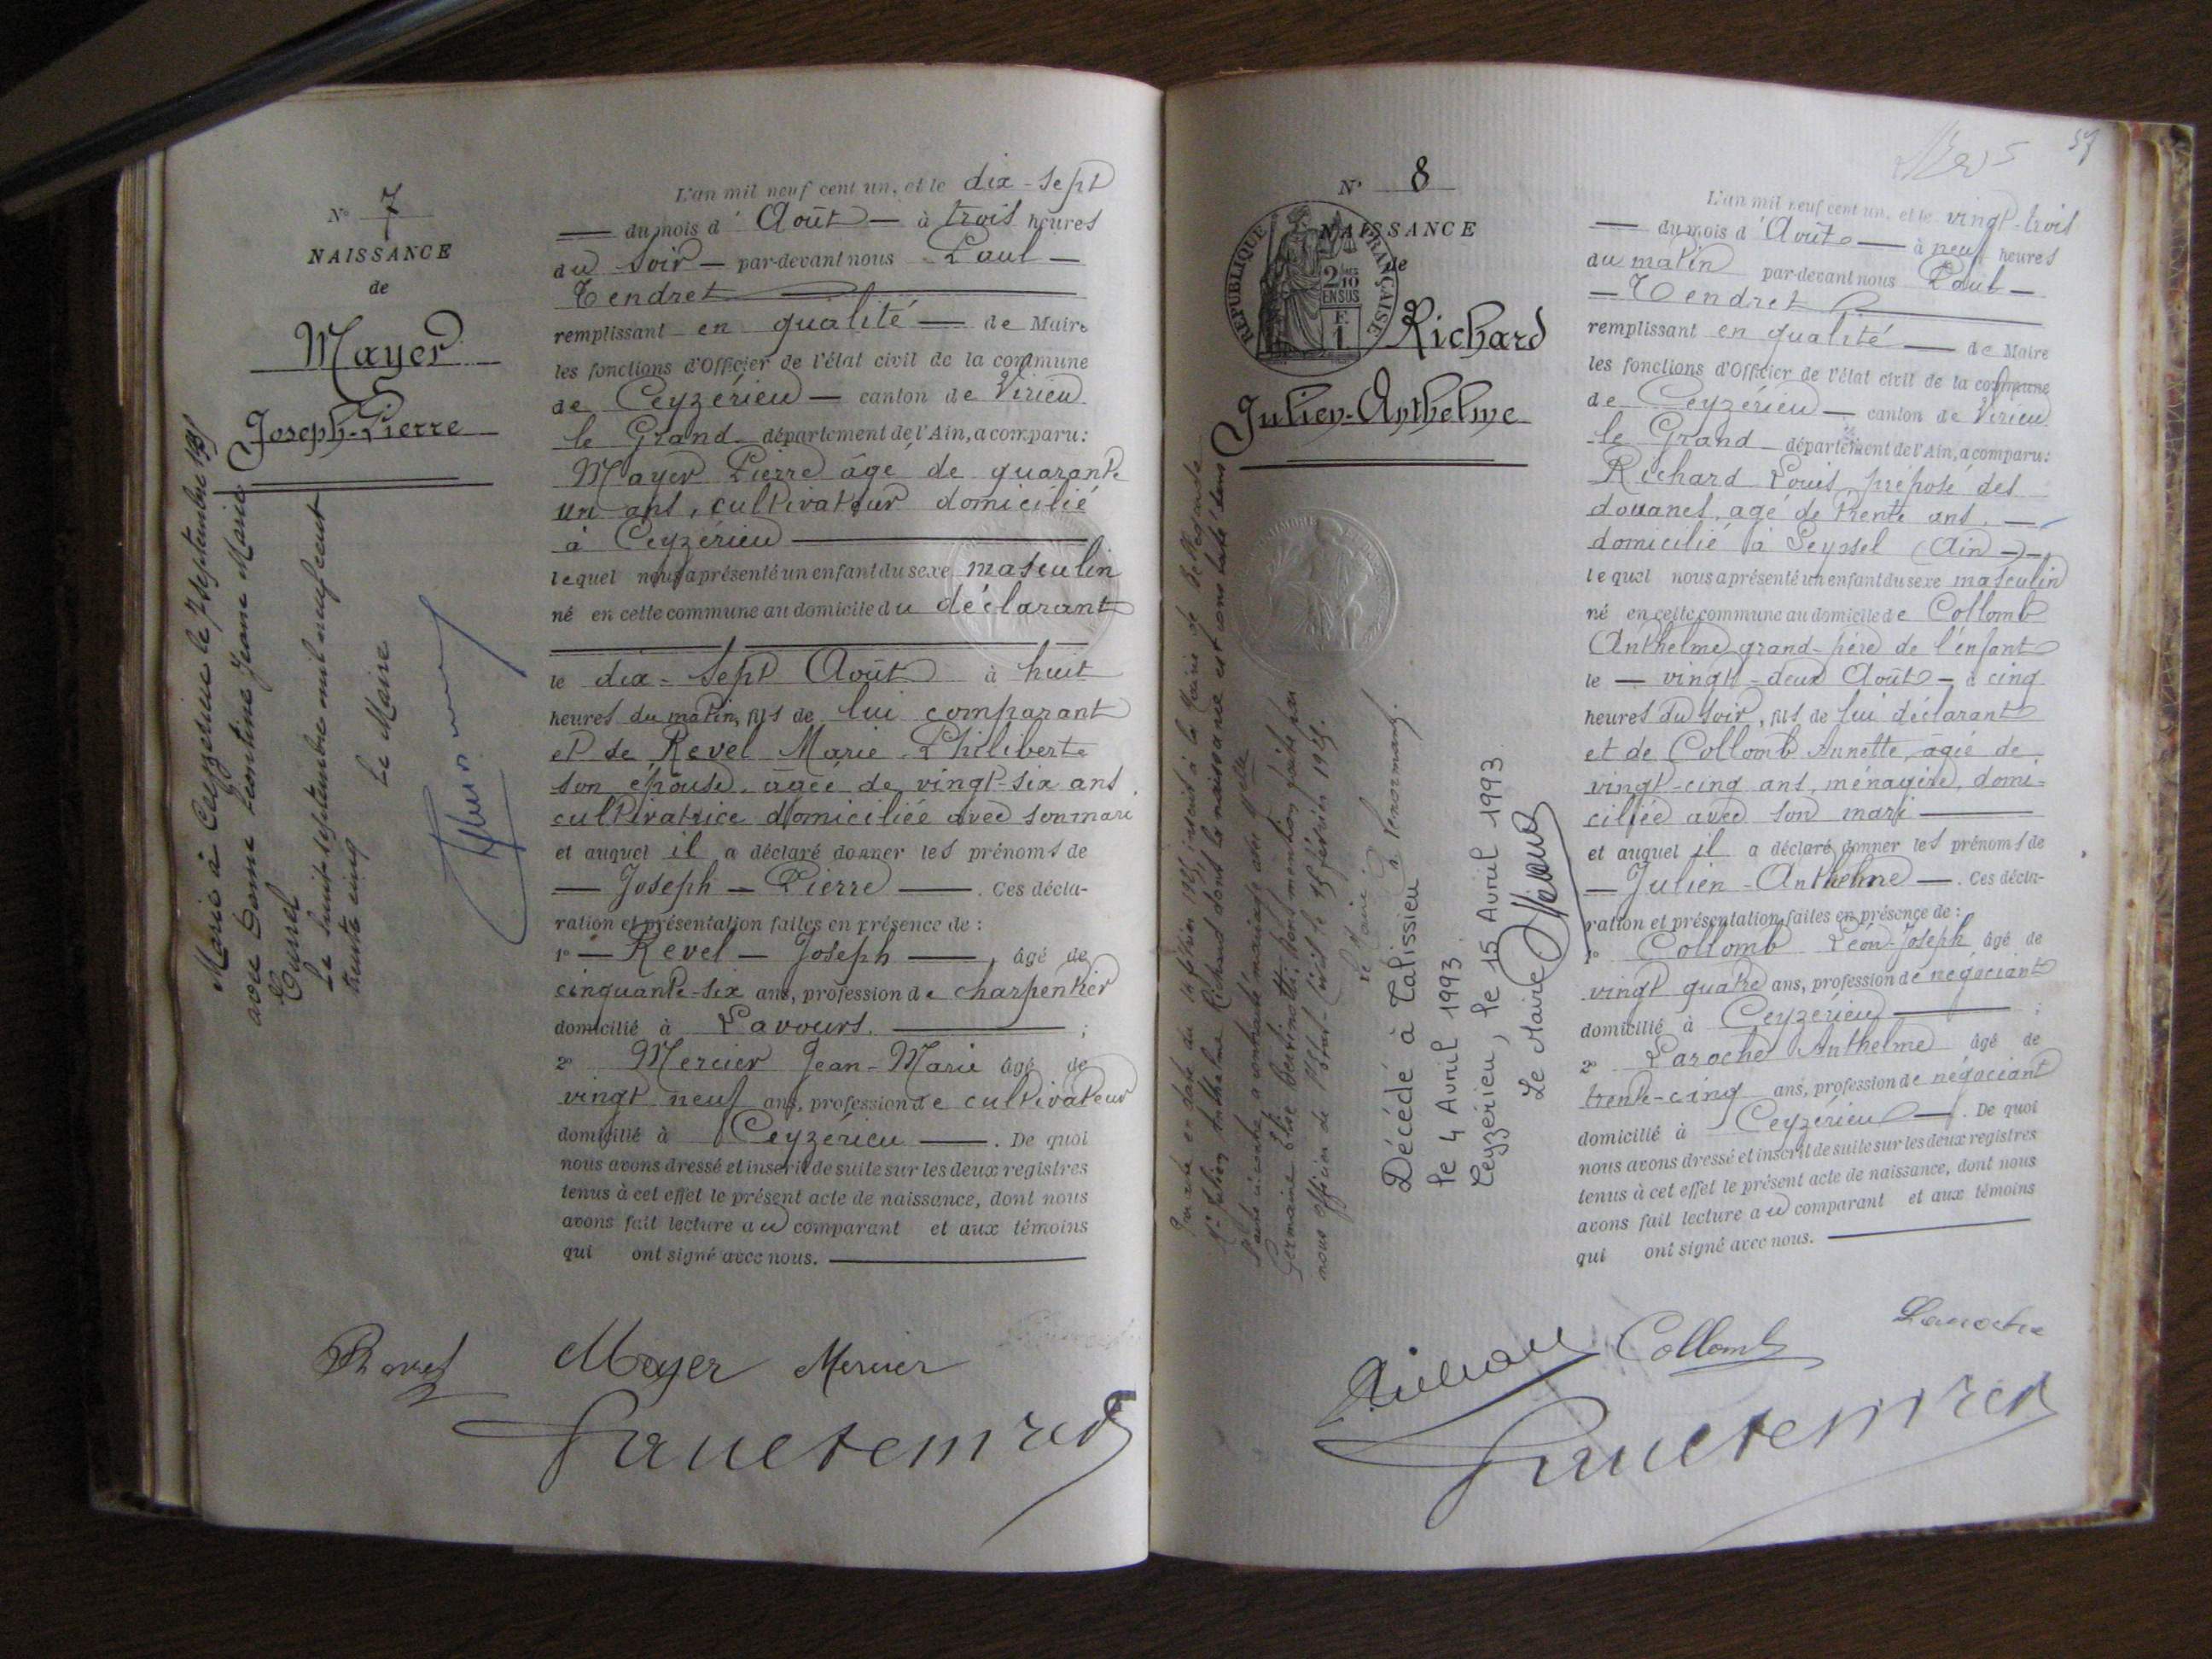 N° 7
NAISSANCE
de
Mayer
Joseph-Pierre
Marié à Ceyzerieu le 7 septembre
avec Dame Léontine Jeanne Marie
Le huit septembre mil neuf cent
trente cinq
Le Maire
L'an mil neuf cent un, et le dix-sept
— du mois d'Août — à trois heures
du soir — par-devant nous Paul —
Tendret
remplissant en qualité — de Maire
les fonctions d'Officier de l'état civil de la commune
de Ceyzérieu — canton de Virieu
le Grand département de l'Ain, a comparu:
Mayer Pierre âgé de quarante
un ans, cultivateur domicilié
à Ceyzérieu
lequel nous a présenté un enfant du sexe masculin
né en cette commune au domicile du déclarant
le dix-sept Août à huit
heures du matin, fils de lui comparant
et de Revel Marie Philiberte
son épouse, agée de vingt-six ans,
cultivatrice domiciliée avec son mari
et auquel il a déclaré donner les prénoms de
— Joseph - Pierre —. Ces décla-
ration et présentation faites en présence de :
1° — Revel — Joseph —, âgé de
cinquante-six ans, profession de charpentier
domicilié à Lavours. — ;
2° Mercier Jean-Marie âgé de
vingt neuf ans, profession de cultivateur
domicilié à Ceyzérieu —. De quoi
nous avons dressé et inscrit de suite sur les deux registres
tenus à cet effet le présent acte de naissance, dont nous
avons fait lecture au comparant et aux témoins
qui ont signé avec nous.
Mayer Mercier
Paul Tendret
57
N° 8
NAISSANCE
de
RÉPUBLIQUE FRANÇAISE
2/10 EN SUS
F. 1
Richard
Julien-Anthelme
Mr Julien Anthelme Richard dont la naissance est constatée dans
l'acte ci-contre, a contracté mariage avec Melle
Germaine Elise mention faite par
nous officier de l'Etat-Civil le 15 février 1925.
Le Maire :
Décédé à Talissieu
le 4 Avril 1993.
Ceyzérieu, le 15 Avril 1993
Le Maire
L'an mil neuf cent un, et le vingt-trois
— du mois d'Août — à neuf heures
du matin par-devant nous Paul —
— Tendret
remplissant en qualité — de Maire
les fonctions d'Officier de l'état civil de la commune
de Ceyzérieu — canton de Virieu
le Grand département de l'Ain, a comparu:
Richard Louis, préposé des
douanes, agé de trente ans, —
domicilié à Seyssel (Ain) —
lequel nous a présenté un enfant du sexe masculin
né en cette commune au domicile de Collomb
Anthelme grand-père de l'enfant
le — vingt-deux Août — à cinq
heures du soir, fils de lui déclarant
et de Collomb Annette, agée de
vingt-cinq ans, ménagère, domi-
ciliée avec son mari
et auquel il a déclaré donner les prénoms de
— Julien - Anthelme —. Ces décla-
ration et présentation faites en présence de :
1° Collomb Léon-Joseph âgé de
vingt quatre ans, profession de négociant
domicilié à Ceyzérieu — ;
2° Laroche Anthelme âgé de
trente-cinq ans, profession de négociant
domicilié à Ceyzérieu —. De quoi
nous avons dressé et inscrit de suite sur les deux registres
tenus à cet effet le présent acte de naissance, dont nous
avons fait lecture au comparant et aux témoins
qui ont signé avec nous.
Richard Collomb Laroche
Paul Tendret